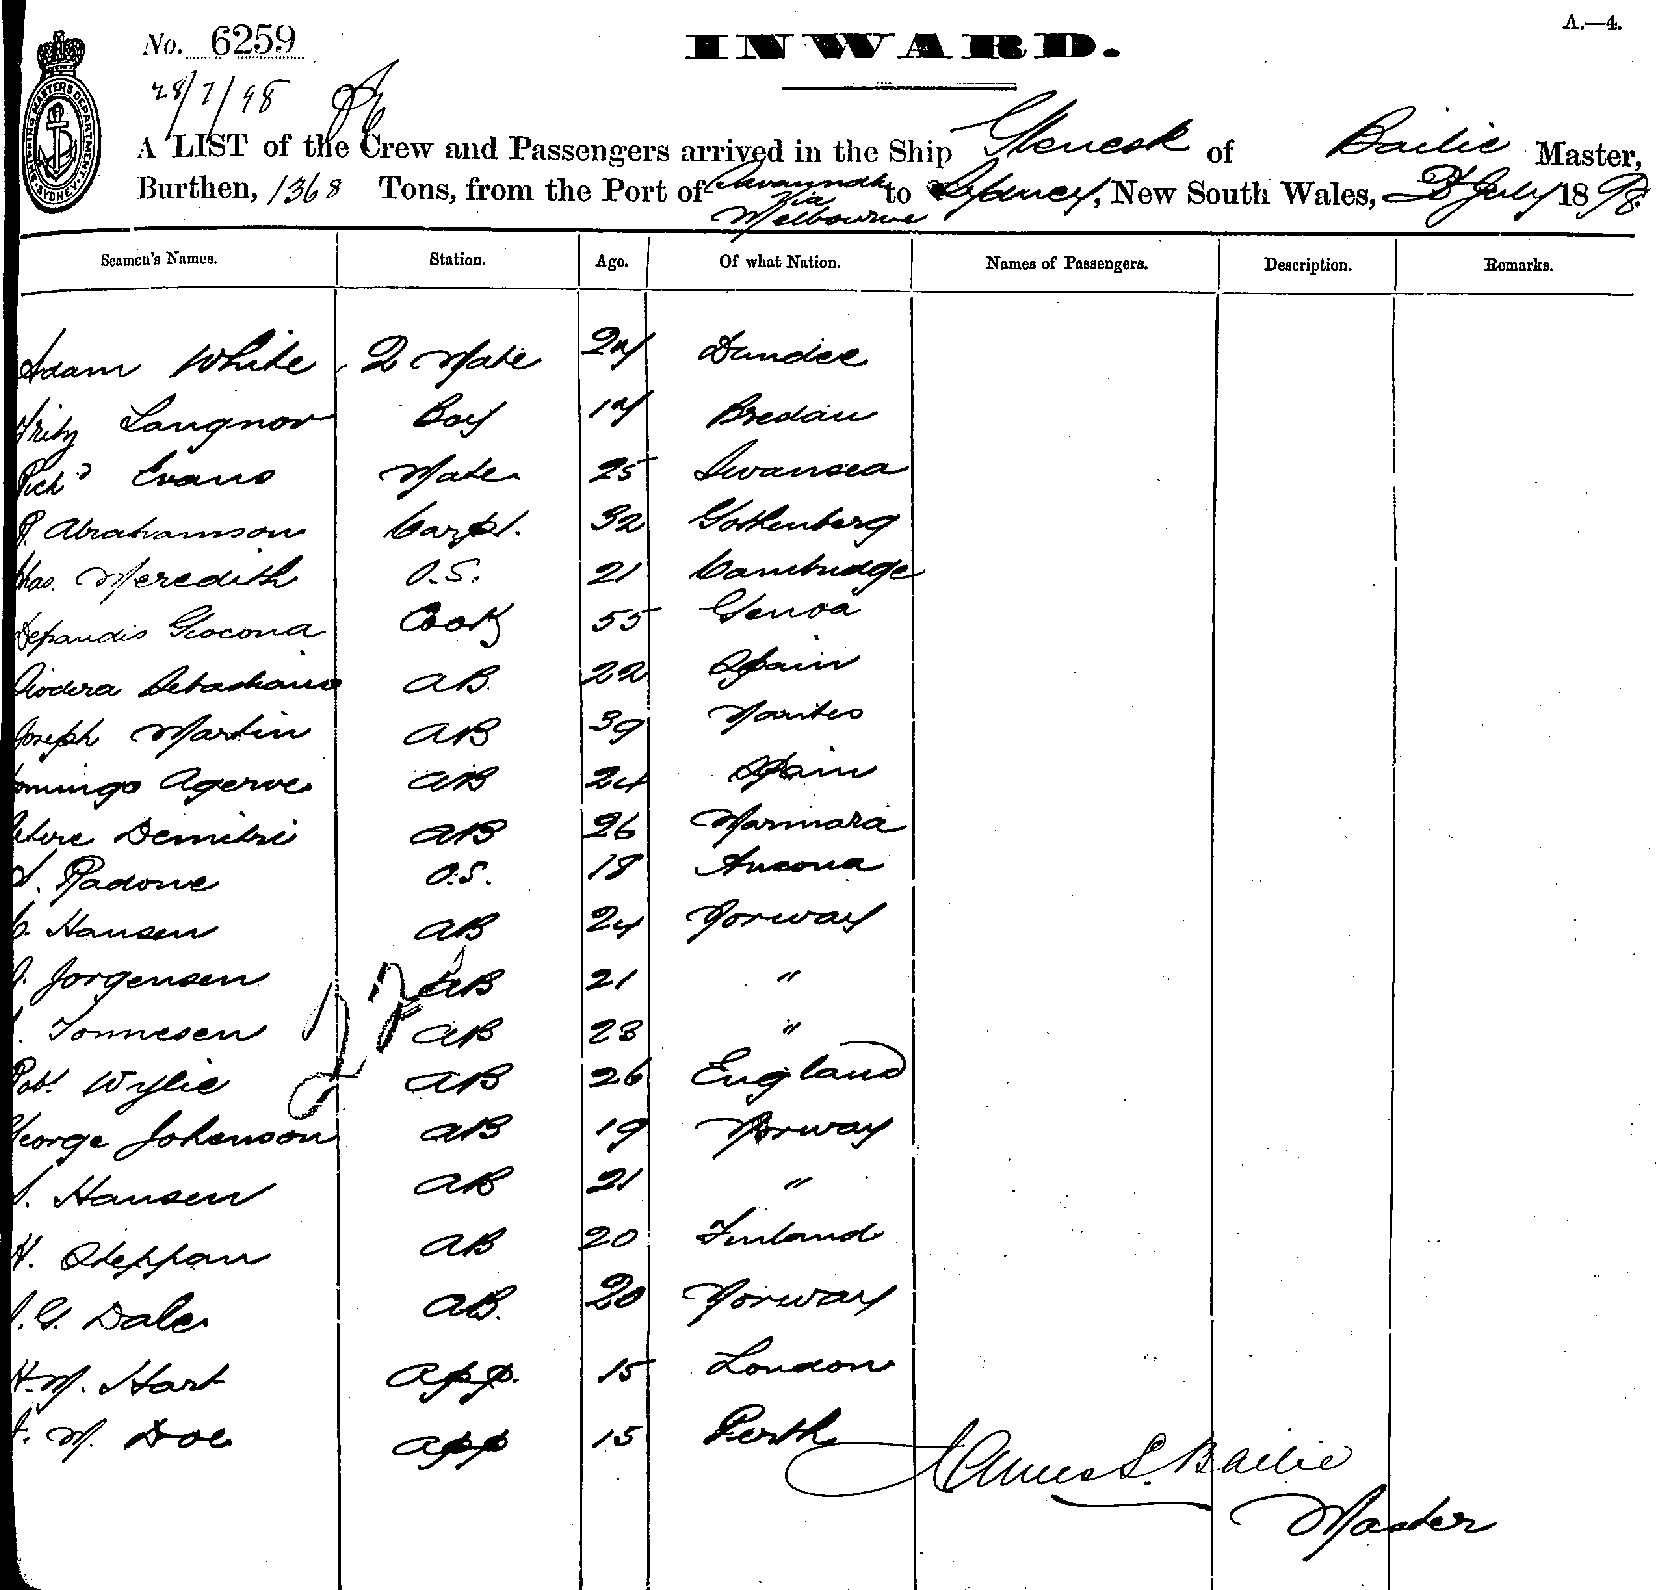 A.—4.
No. 6259
INWARD.
28/7/98
A LIST of the Crew and Passengers arrived in the Ship Glenesk of Bailie Master,
Burthen, 1368 Tons, from the Port of Savannah via Melbourne to Sydney, New South Wales, July 1898
Seamen's Names. Station. Age. Of what Nation. Names of Passengers. Description. Remarks.
Adam White 2 Mate 27 Dundee
Fritz Langnor Boy 17 Bredau
Richd Evans Mate 25 Swansea
P. Abrahamson Carpt. 32 Gothenberg
Chas. Meredith O.S. 21 Cambridge
Giocona Cook 55 Genoa
Sebastiano AB. 22 Spain
Joseph Martin AB 39 Nantes
Domingo Agerve AB 24 Spain
Demitri AB 26 Marmara
Radone O.S. 18 Ancona
C. Hansen AB 24 Norway
Jorgensen AB 21 "
Tonnesen AB 28 "
Robt Wylie AB 26 England
George Johenson AB 19 Norway
Hansen AB 21 "
H. Steppan AB 20 Finland
G. Dale AB. 20 Norway
H. M. Hart App. 15 London
M. Doe App 15 Perth
22
James S. Bailie
Master